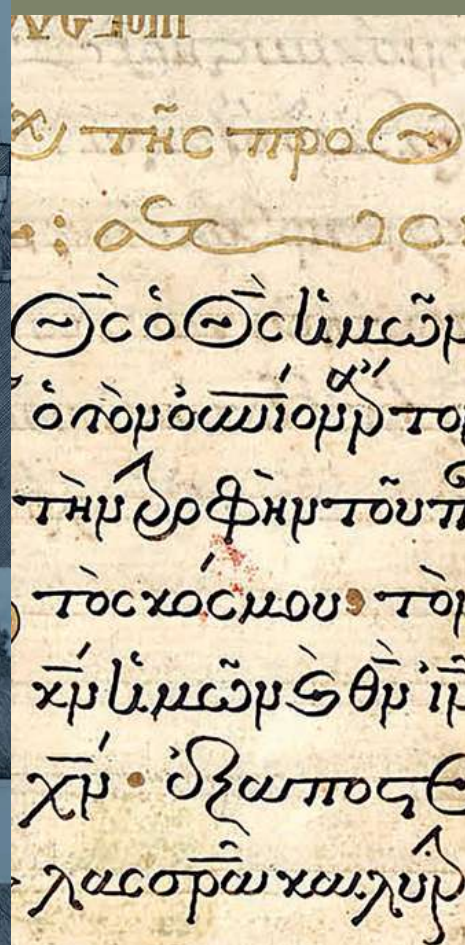 τῆς προθ
Θ̅ς ὁ Θ̅ς ἡμῶν
ὁ τὸν οὐ̅νιον ἄρτον
τὴν τροφὴν τοῦ π
τὸς κόσμου· τὸν
κ̅ν ἡμῶν ϗ θ̅ν ἰ̅ν
χ̅ν · ἐξαποστ
λας σρ̅α και λυτρ